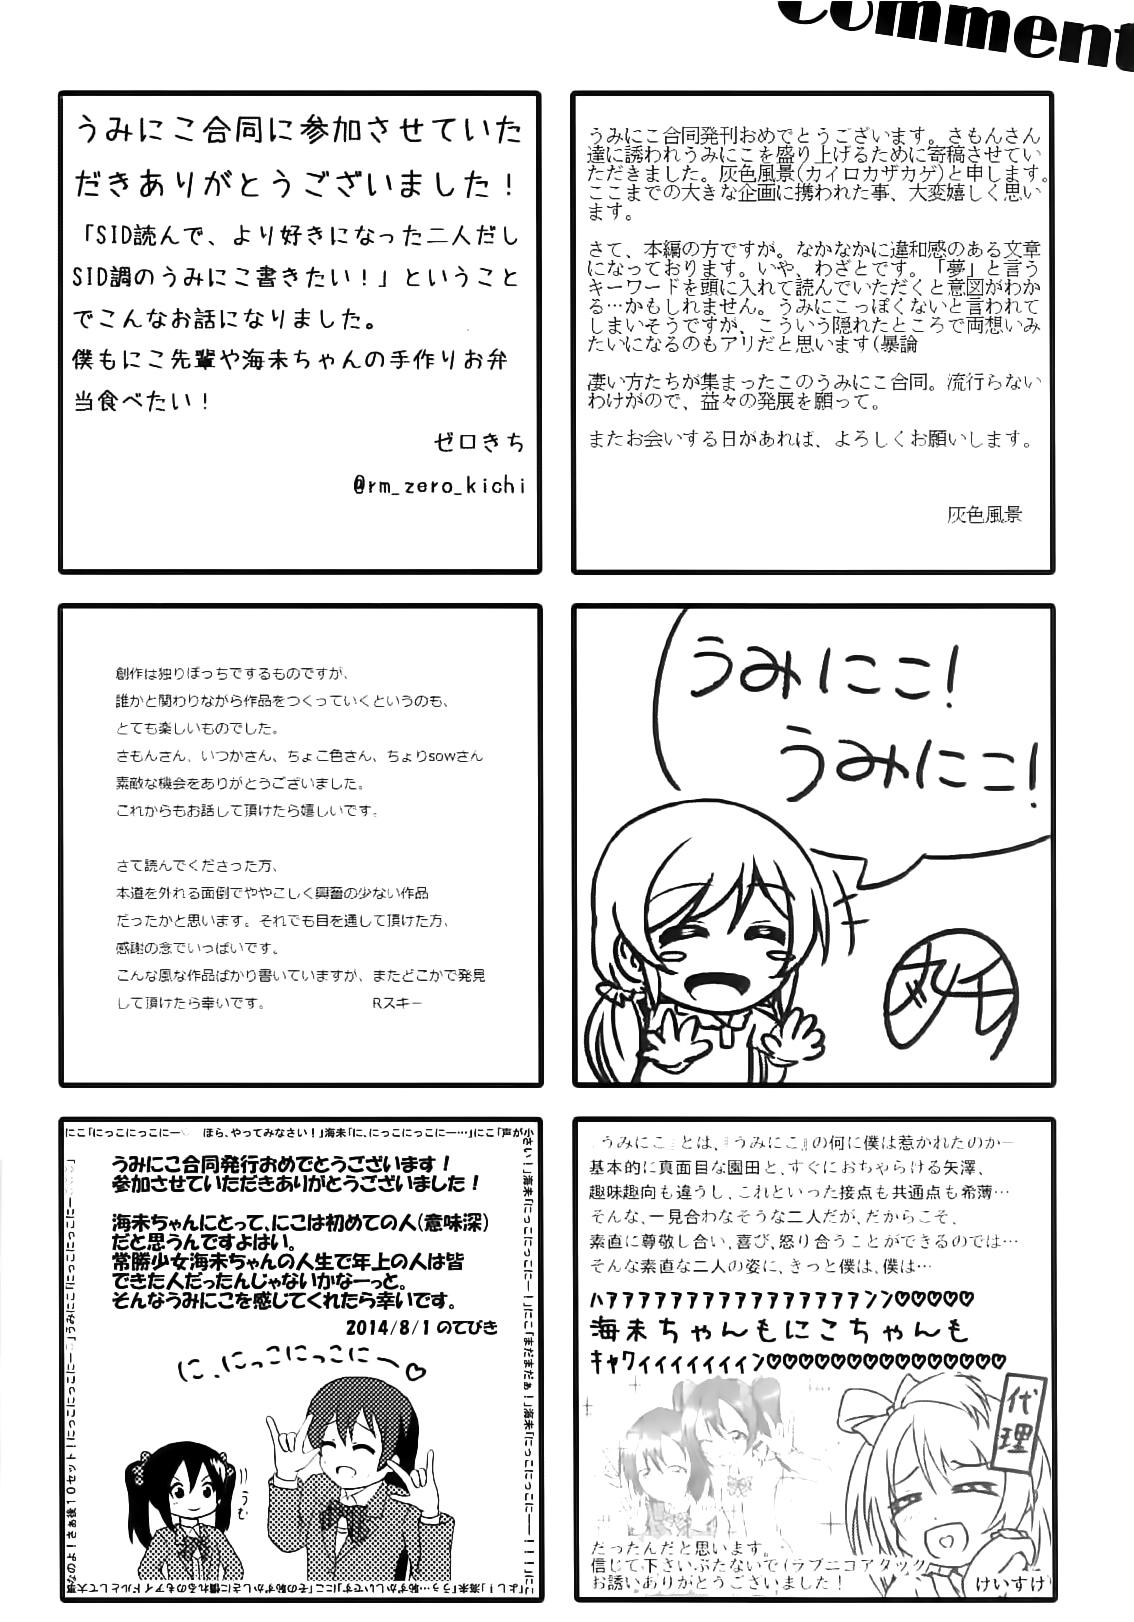 Comment
うみにこ合同に参加させていた
だきありがとうございました！
「SID読んで、より好きになった二人だし
SID調のうみにこ書きたい！」ということ
でこんなお話になりました。
僕もにこ先輩や海未ちゃんの手作りお弁
当食べたい！
ゼロきち
@rm_zero_kichi
うみにこ合同発刊おめでとうございます。さもんさん
達に誘われうみにこを盛り上げるために寄稿させてい
ただきました。灰色風景(カイロカザカゲ)と申します。
ここまでの大きな企画に携われた事、大変嬉しく思い
ます。
さて、本編の方ですが。なかなかに違和感のある文章
になっております。いや、わざとです。「夢」と言う
キーワードを頭に入れて読んでいただくと意図がわか
る…かもしれません。うみにこっぽくないと言われて
しまいそうですが、こういう隠れたところで両想いみ
たいになるのもアリだと思います(暴論
凄い方たちが集まったこのうみにこ合同。流行らない
わけがので、益々の発展を願って。
またお会いする日があれば、よろしくお願いします。
灰色風景
創作は独りぼっちでするものですが、
誰かと関わりながら作品をつくっていくというのも、
とても楽しいものでした。
さもんさん、いつかさん、ちょこ色さん、ちょりsowさん
素敵な機会をありがとうございました。
これからもお話して頂けたら嬉しいです。
さて読んでくださった方、
本道を外れる面倒でややこしく興奮の少ない作品
だったかと思います。それでも目を通して頂けた方、
感謝の念でいっぱいです。
こんな風な作品ばかり書いていますが、またどこかで発見
して頂けたら幸いです。 Rスキー
うみにこ！
うみにこ！
にこ「にっこにっこにー♡ ほら、やってみなさい！」海未「に、にっこにっこにー…」にこ「声が小
さい！」海未「にっこにっこにー！」にこ「まだまだぁ！」海未「にっこにっこにーーー！！！」
うみにこ合同発行おめでとうございます！
参加させていただきありがとうございました！
海未ちゃんにとって、にこは初めての人(意味深)
だと思うんですよはい。
常勝少女海未ちゃんの人生で年上の人は皆
できた人だったんじゃないかなーっと。
そんなうみにこを感じてくれたら幸いです。
2014/8/1 のてびき
に、にっこにっこにー♡
うむ
「よし！」海未「うぅ…恥ずかしいです」にこ「その恥ずかしさに慣れるのもアイドルとして大事
なのよ！さぁ後10セット！
『うみにこ』とは、『うみにこ』の何に僕は惹かれたのかー
基本的に真面目な園田と、すぐにおちゃらける矢澤、
趣味趣向も違うし、これといった接点も共通点も希薄…
そんな、一見合わなそうな二人だが、だからこそ、
素直に尊敬し合い、喜び、怒り合うことができるのでは…
そんな素直な二人の姿に、きっと僕は、僕は…
ハァァァァァァァァァァァァァァァァンン♡♡♡♡♡
海未ちゃんもにこちゃんも
キャワィィィィィィィン♡♡♡♡♡♡♡♡♡♡♡♡♡♡♡
代理
だったんだと思います。
信じて下さいぶたないで(ラブニコアタック
お誘いありがとうございました！
けいすけ